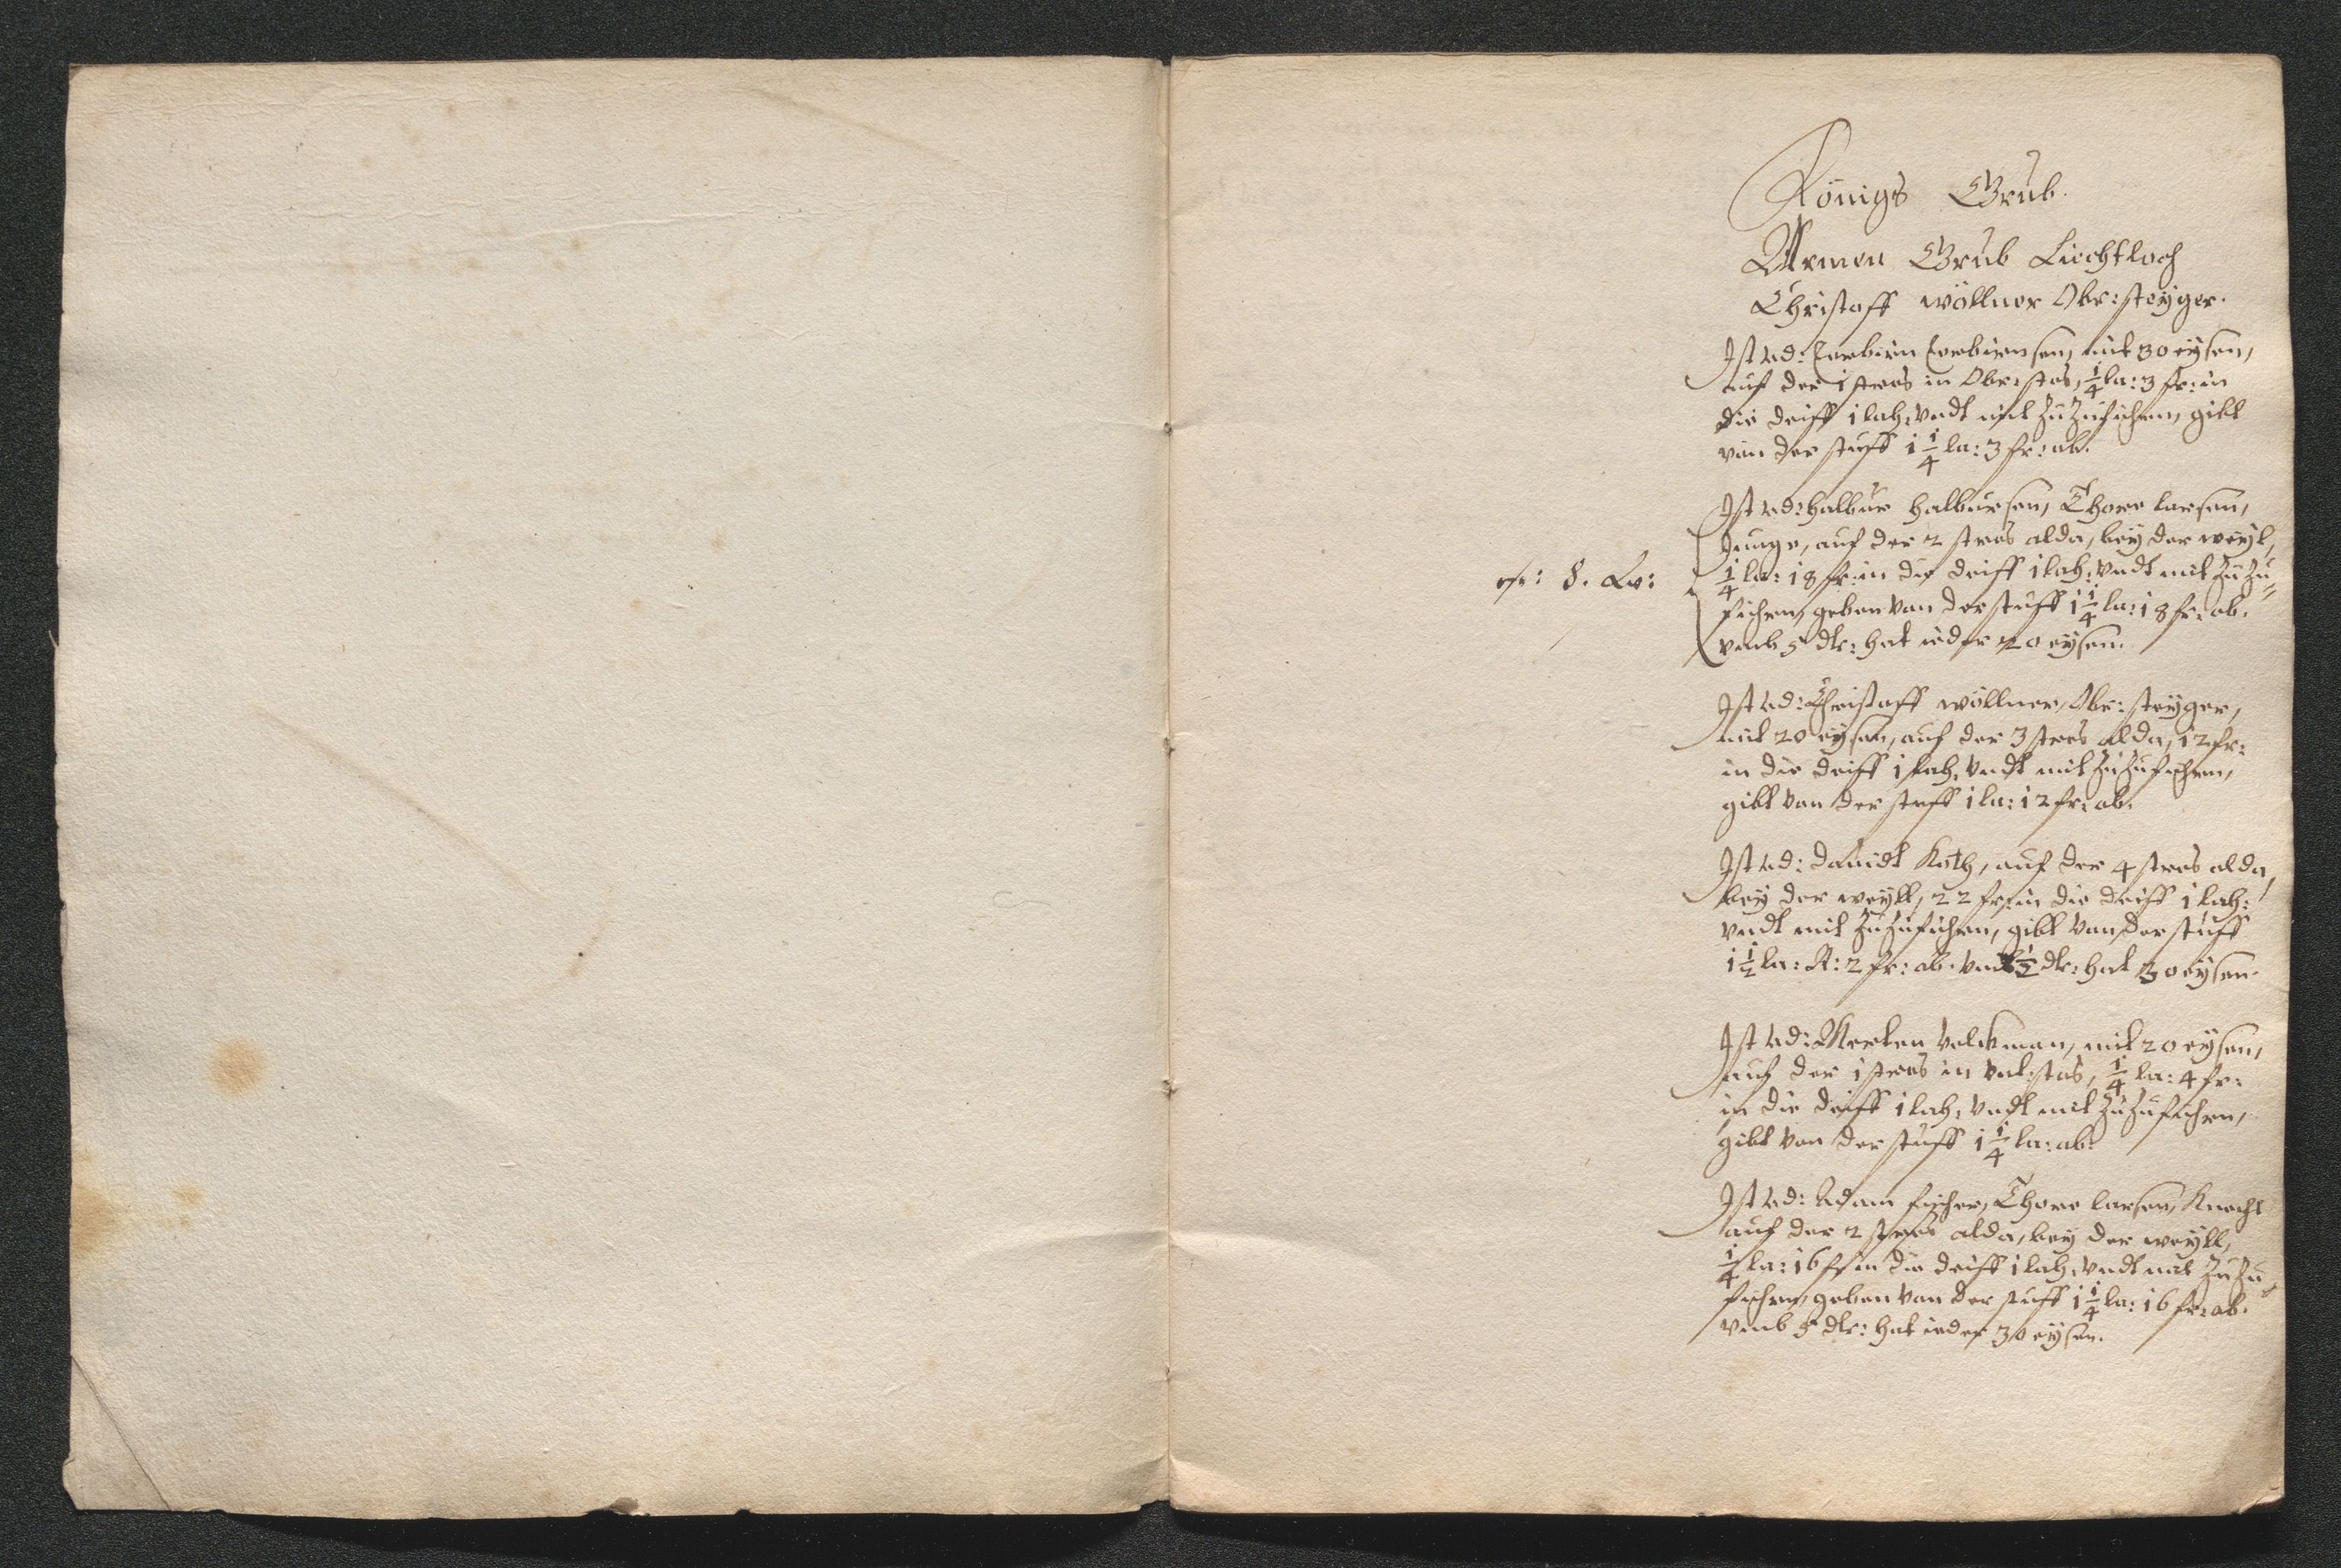 Königs Grub.
Armen Grub Liechtloch
Christoff wöllner Obr: steÿger.
Ist vd: Torbiörn Torbiörnsen, mit 30 eÿsen,
auf der 1 stros in Obr: stos, 1/4 la: 3 fr: in
die deiff 1 lah: vndt mit Zu Zufuhren, gibt
von der stuff 1 1/4 la: 3 fr: ab.
Ist vd: halbur halbursen, Thore larsen,
Junge, auf der 2 stros alda, beÿ der weÿl,
1/4 la: 18 fr: in die deiff 1 lah: vndt mit Zu Zu=
fuhren, geben von der stuff 1 1/4 la: 18 fr: ab.
vmb 5 dlr: hat ieder 20 eÿsen.
Ist vd: Christoff wöllner, Obr: steÿger,
mit 20 eÿsen, auf der 3 stros alda, 12 fr:
in die deiff 1 lah: vndt mit Zu Zufuhren,
gibt von der stuff 1 la: 12 fr: ab.
Ist vd: Dauidt Koth, auf der 4 stros alda,
beÿ der weÿll, 22 fr: in die deiff 1 lah:
vndt mit Zu Zufuhren, gibt von der stuff
1 1/2 la: R: 2 fr: ab. hat 30 eÿsen.
Ist vd: Merten Volckman, mit 20 eÿsen,
auf der 1 stros in Vnt: stos, 1/4 la: 4 fr:
in die deiff 1 lah: vndt mit Zu Zufuhren,
gibt von der stuff 1 1/4 la: ab.
Ist vd: Adam fischer, Thore larsen, Knecht
auf der 2 stros alda, beÿ der weÿll,
1/4 la: 16 fr: in die deiff 1 lah: vndt mit Zu Zu=
fuhren, geben von der stuff 1 1/4 la: 16 fr: ab.
vmb 5 dlr: hat ieder 30 eÿsen.